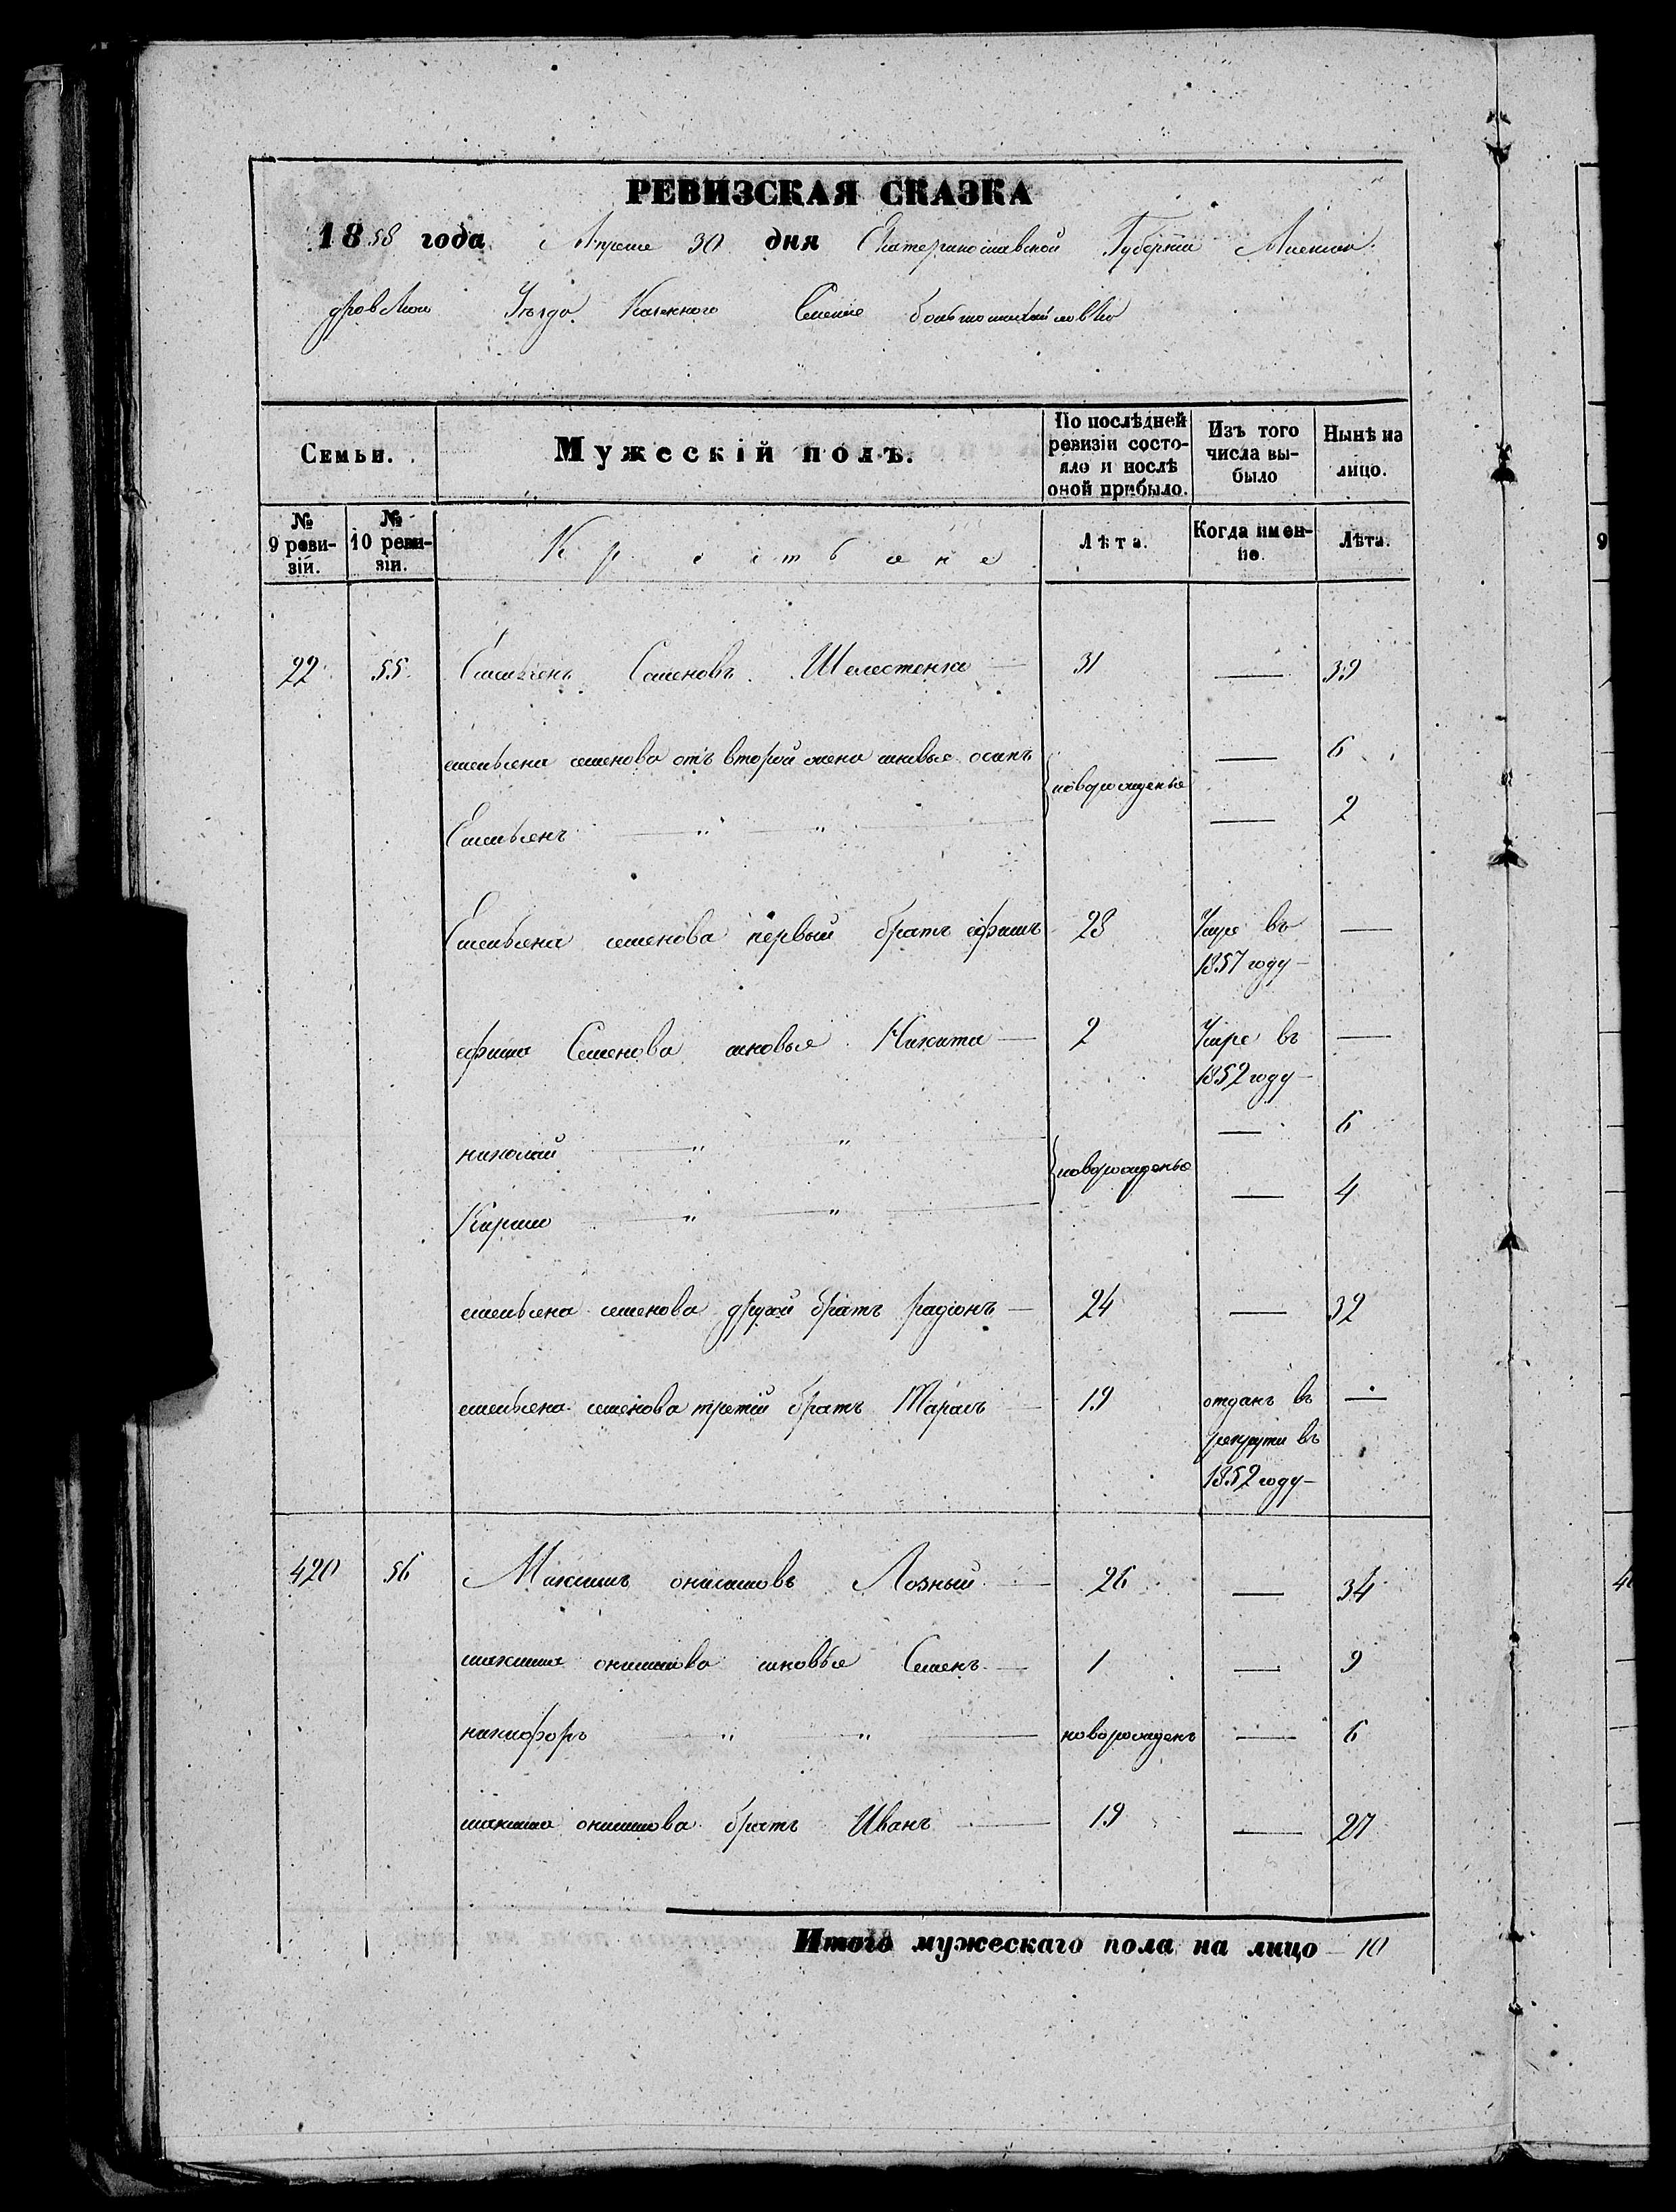 РЕВИЗСКАЯ СКАЗКА
1858 года Апреля 30 дня Екатеринославской Губерніи Алексан
дровскаго Уѣзда Казеннаго Селенія большомихайловки
Семьи. Мужескій полъ. По послѣдней ревизіи состояло и послѣ оной прибыло. Изъ того числа выбыло Нынѣ на лицо.
№ 9 ревизіи. № 10 ревизіи. Крестьяне Лѣта. Когда именно. Лѣта.
22 55 Емельянъ Семеновъ Шелестенко — 31 — 39
емельяна семенова отъ второй жены сыновья осипъ новорожденые — 6
Емельянъ — " — " — — 2
Емельяна семенова первый братъ ефимъ 23 Умре въ 1857 году — —
ефима Семенова сыновья Никита — 2 Умре въ 1852 году — —
николай — " — " — новорожденые — 6
Кирило — " — " — — 4
емельяна семенова другой братъ радіонъ — 24 — 32
емельяна семенова третій братъ Тарасъ — 19 отданъ въ рекруты въ 1852 году — —
420 56 Максимъ онисимовъ Лозный — 26 — 34
максима онисимова сыновья Семенъ — 1 — 9
никифоръ — " — " — новорожденъ — 6
максима онисимова братъ Иванъ — 19 — 27
Итого мужескаго пола на лицо — 10